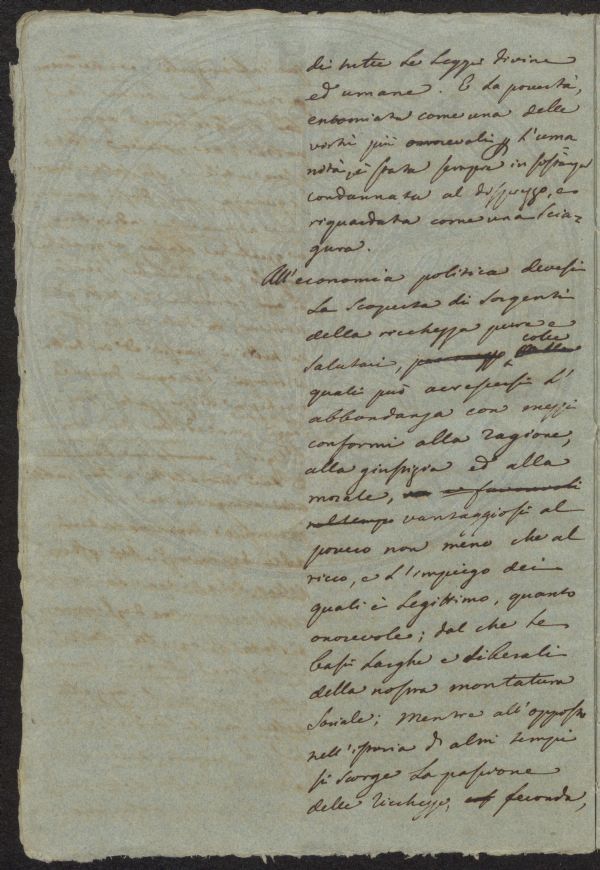 di tutte le leggi divine
ed umane. E la povertà,
encomiata come una delle
virtù più onorevoli l'uma
nità, è stata sempre in sostanza
condannata al disprezzo, e
riguardata come una scia=
gura.
All'economia politica devesi
la scoperta di sorgenti
della ricchezza pure e
salutari, colle
quali può accrescersi l'
abbondanza con mezzi
conformi alla ragione,
alla giustizia ed alla
morale, vantaggiosi al
povero non meno che al
ricco, e l'impiego dei
quali è legittimo, quanto
onorevole; dal che le
basi larghe e liberali
della nostra montatura
sociale; mentre all'opposto
nell'istoria di altri tempi
si scorge la passione
delle ricchezze, feconda,